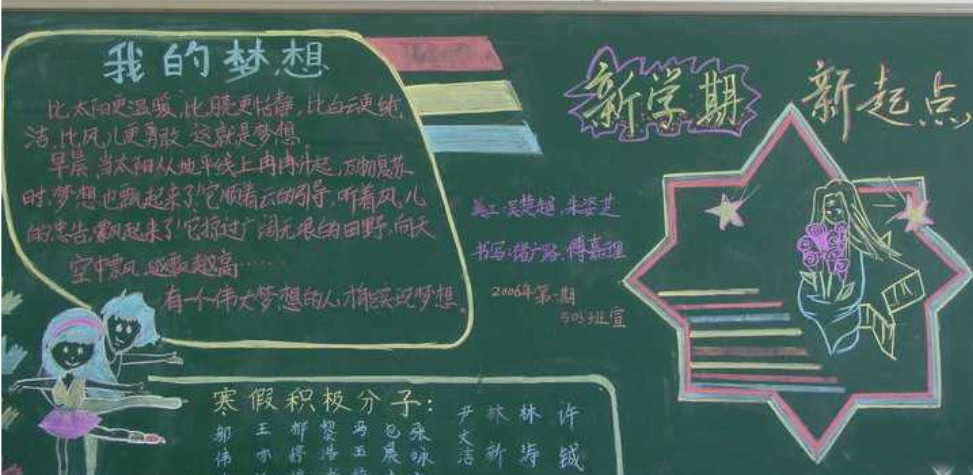 我的梦想
比太阳更温暖,比月亮更恬静,比白云更纯
洁,比风儿更勇敢,这就是梦想。
早晨,当太阳从地平线上冉冉升起,万物复苏
时,梦想也飘起来了!它顺着云的引导,听着风儿
的忠告,飘起来了!它掠过广阔无垠的田野,向天
空中飘,越飘越高……
有一个伟大梦想的人,才能实现梦想。
新学期 新起点
美工:吴楚越、朱姿芝
书写:褚广路、傅嘉理
2006年第一期
503班宣
寒假积极分子:
邹 王 郁 黎 冯 包 张 尹 林 林 许
伟 亦 婷 浩 玉 晨 咏 文 新 涛 铖
洁